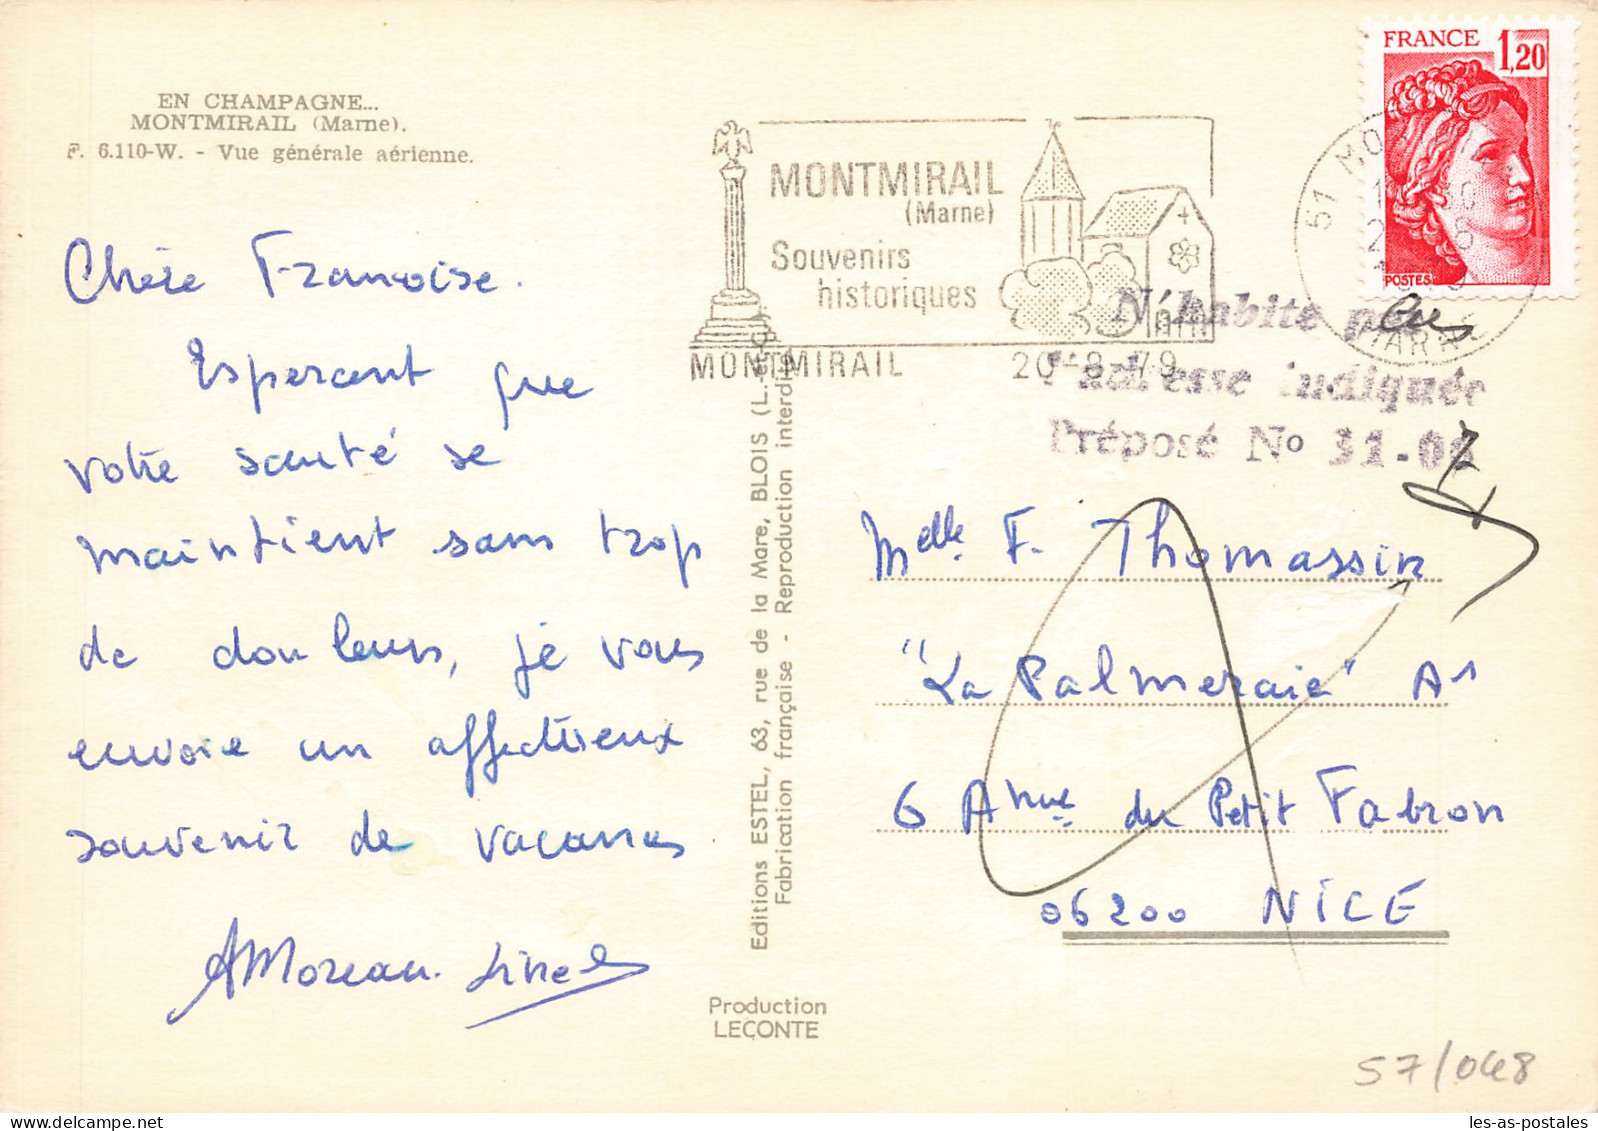 EN CHAMPAGNE...
MONTMIRAIL (Marne).
F. 6.110-W. - Vue générale aérienne.
Chère Francoise.
Esperant que
votre santé se
maintient sans trop
de douleurs, je vous
envoie un affectueux
souvenir de vacances
AMoreau
Editions ESTEL, 63, rue de la Mare, BLOIS (L.-et-C.)
Fabrication française - Reproduction interdite
Production
LECONTE
MONTMIRAIL
(Marne)
Souvenirs
historiques
MONTMIRAIL 20-8-1979
FRANCE 1,20
POSTES
51 MO
MARNE
N'habite plus
l'adresse indiquée
Préposé No 31-02
Melle F. Thomassin
"La Palmeraie" A1
6 Avnue du Petit Fabron
06200 NICE
57/048
les-as-postales